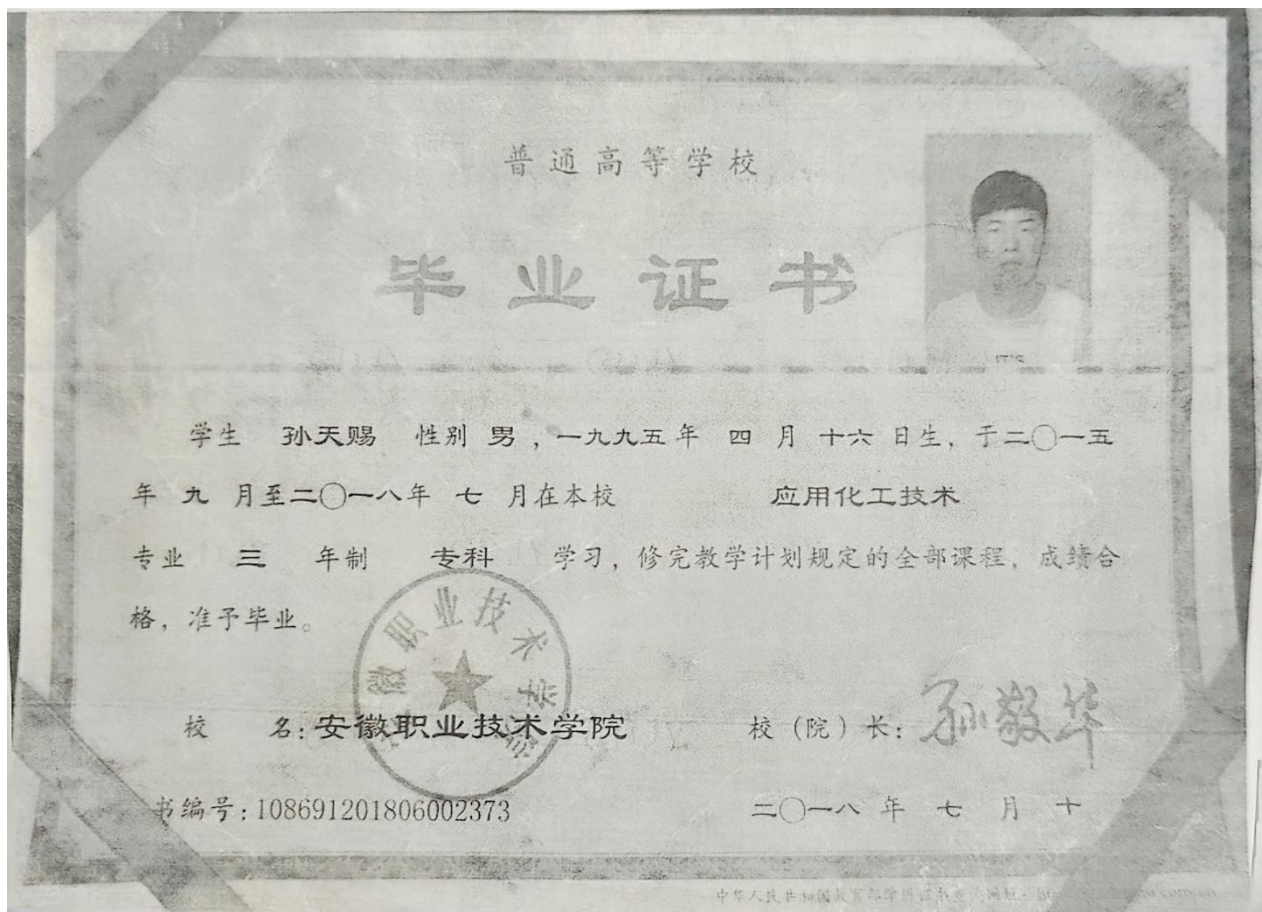 普通高等学校
毕业证书
IT'S
学生 孙天赐 性别 男，一九九五年 四 月 十六 日生，于二〇一五
年 九 月至二〇一八年 七 月在本校 应用化工技术
专业 三 年制 专科 学习，修完教学计划规定的全部课程，成绩合
格，准予毕业。
徽职业技术学院
校 名：安徽职业技术学院 校（院）长：孙敬华
书编号：108691201806002373 二〇一八 年 七 月 十
中华人民共和国教育部学历证书查询网址：